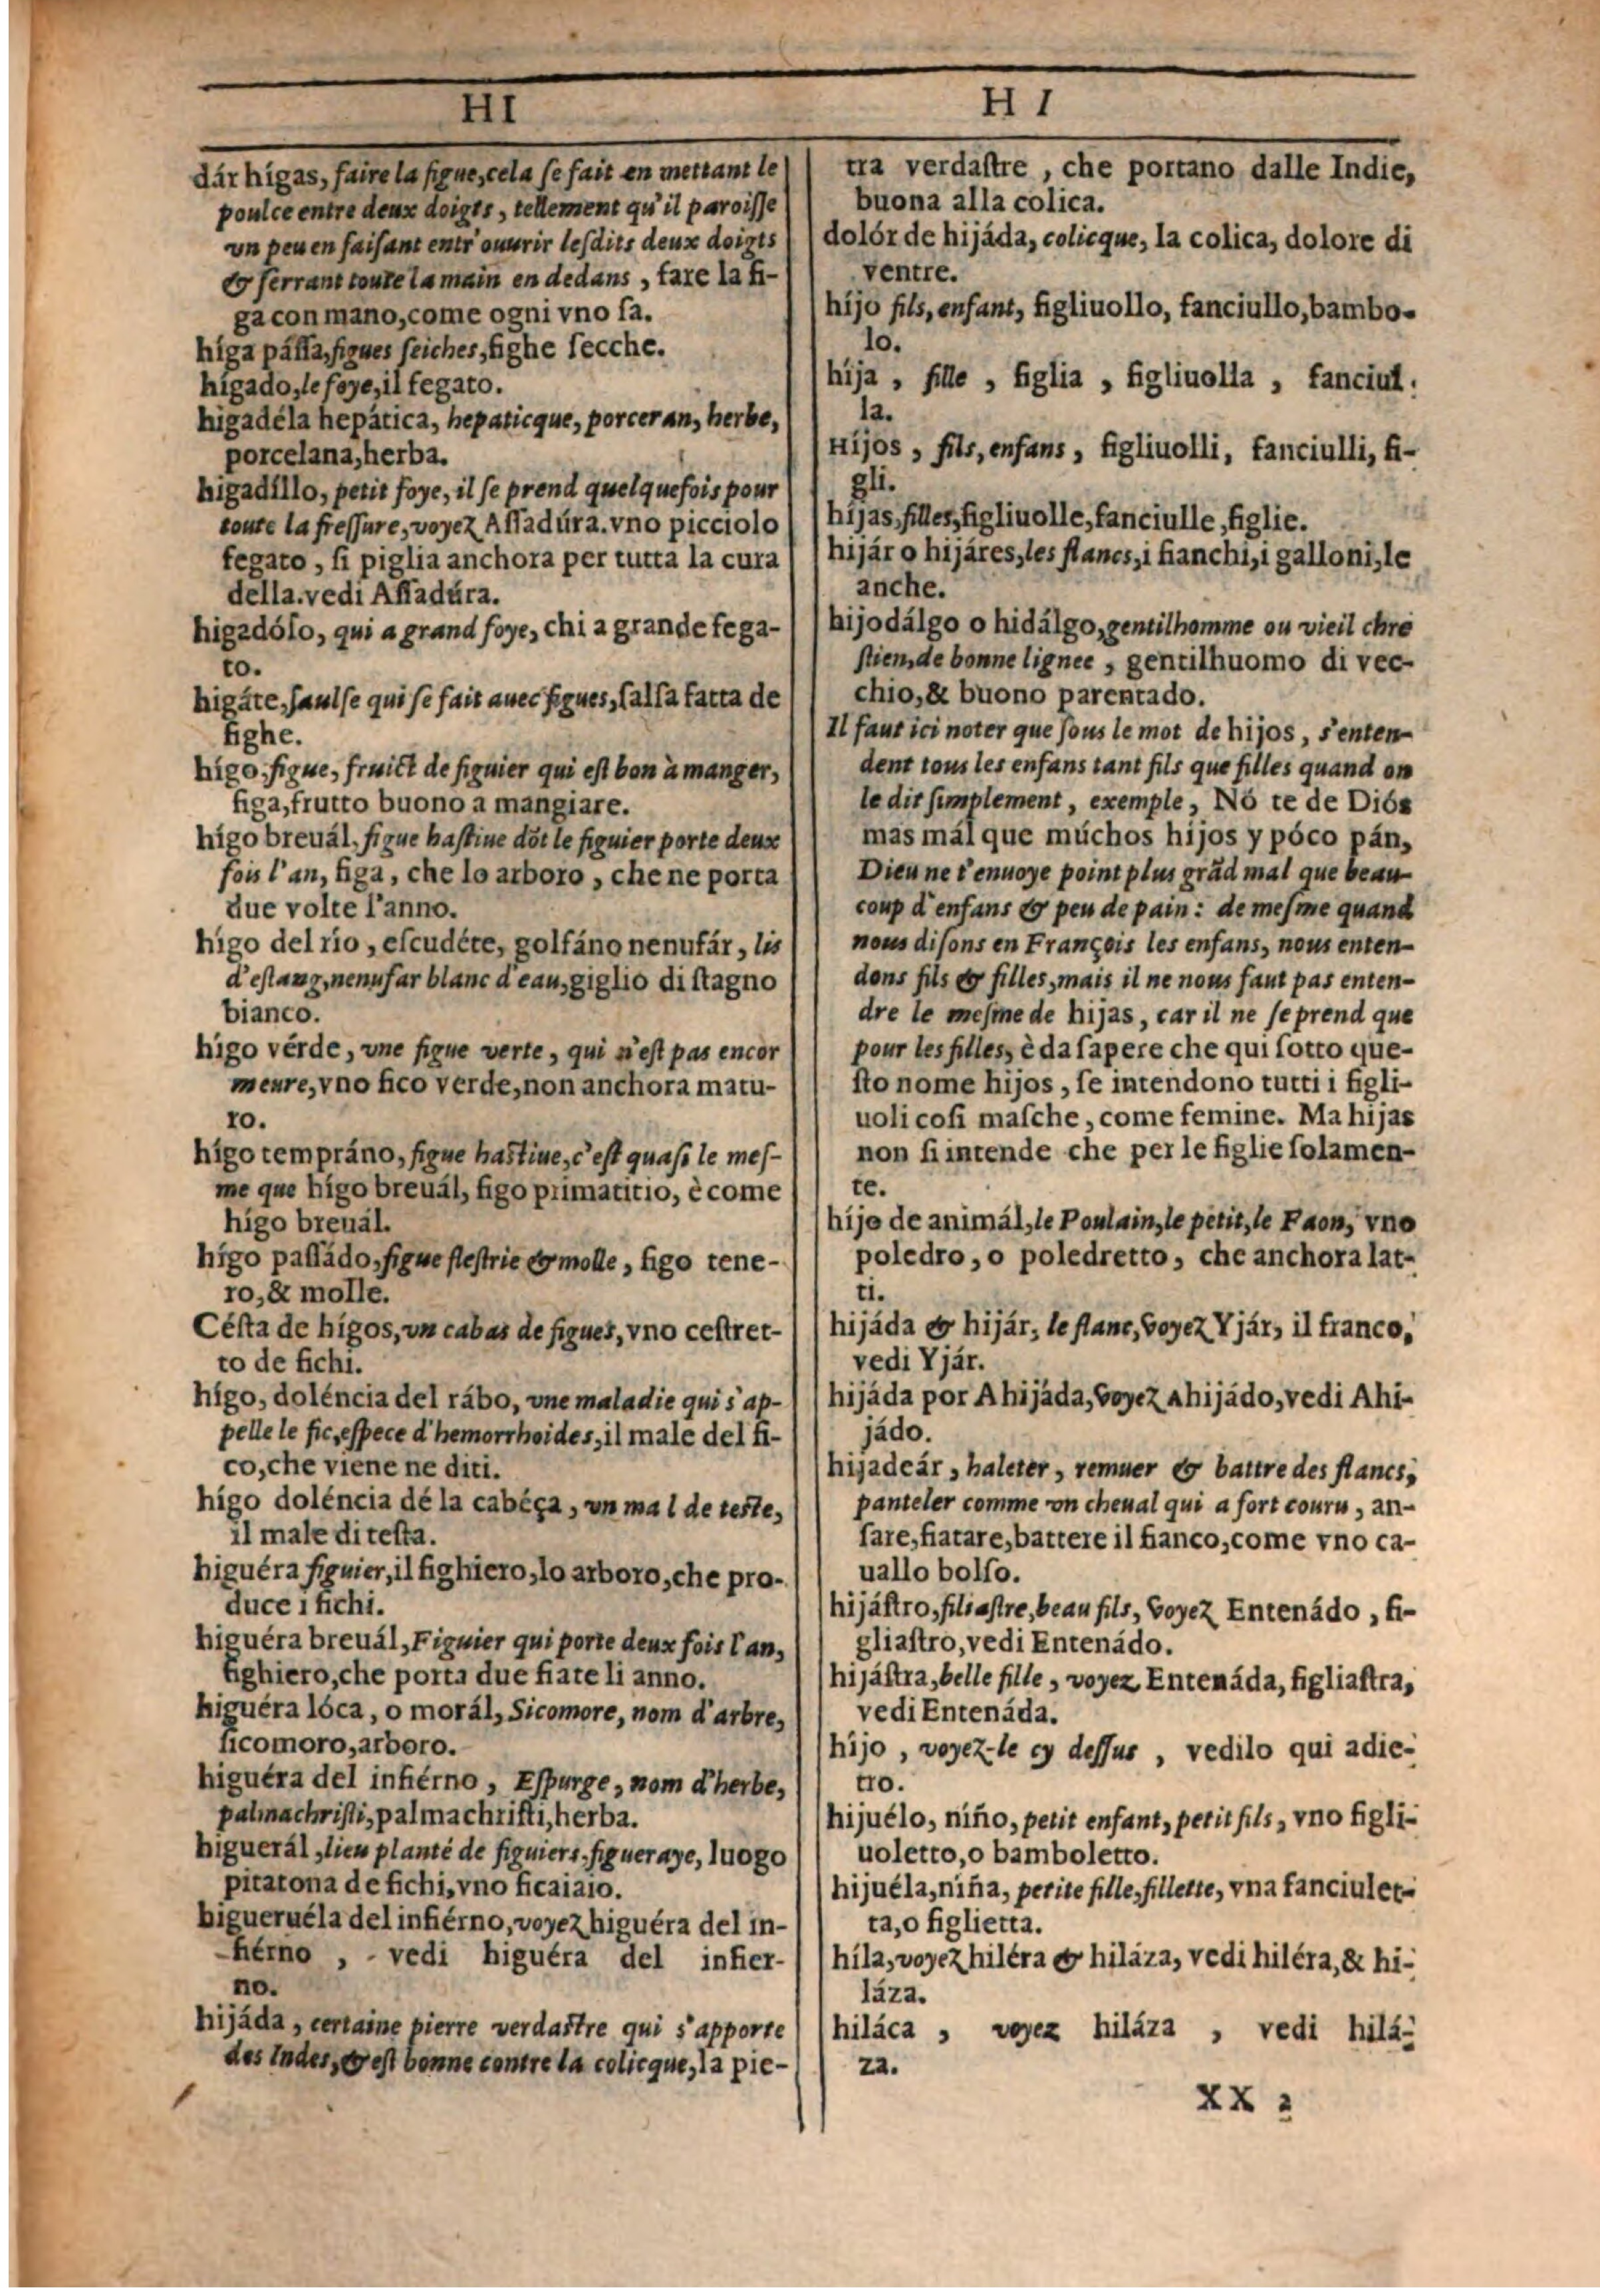 HI
dár hígas, faire la figue, cela ſe fait en mettant le
poulce entre deux doigts, tellement qu'il paroiſſe
vn peu en faiſant entr'ouurir leſdits deux doigts
& ſerrant toute la main en dedans, fare la fi-
ga con mano, come ogni vno ſa.
híga páſſa, figues ſeiches, fighe ſecche.
hígado, le foye, il fegato.
higadéla hepática, hepaticque, porceran, herbe,
porcelana, herba.
higadíllo, petit foye, il ſe prend quelquefois pour
toute la freſſure, voyez Aſſadúra. vno picciolo
fegato, ſi piglia anchora per tutta la cura
della. vedi Aſſadúra.
higadóſo, qui a grand foye, chi a grande fega-
to.
higáte, ſaulſe qui ſe fait auec figues, ſalſa fatta de
fighe.
hígo, figue, fruict de figuier qui eſt bon à manger,
figa, frutto buono a mangiare.
hígo breuál, figue haſtiue dõt le figuier porte deux
fois l'an, figa, che lo arboro, che ne porta
due volte l'anno.
hígo del río, eſcudéte, golfáno nenufár, lis
d'eſtang, nenufar blanc d'eau, giglio di ſtagno
bianco.
hígo vérde, vne figue verte, qui n'eſt pas encor
meure, vno fico verde, non anchora matu-
ro.
hígo tempráno, figue haſtiue, c'eſt quaſi le meſ-
me que hígo breuál, figo primatitio, è come
hígo breuál.
hígo paſſádo, figue fleſtrie & molle, figo tene-
ro, & molle.
Céſta de hígos, vn cabas de figues, vno ceſtret-
to de fichi.
hígo, doléncia del rábo, vne maladie qui s'ap-
pelle le fic, eſpece d'hemorrhoides, il male del fi-
co, che viene ne diti.
hígo doléncia dé la cabéça, vn mal de teſte,
il male di teſta.
higuéra figuier, il fighiero, lo arboro, che pro-
duce i fichi.
higuéra breuál, Figuier qui porte deux fois l'an,
fighiero, che porta due fiate li anno.
higuéra lóca, o morál, Sicomore, nom d'arbre,
ſicomoro, arboro.
higuéra del infiérno, Eſpurge, nom d'herbe,
palmachriſti, palmachriſti, herba.
higuerál, lieu planté de figuiers, figueraye, luogo
pitatona de fichi, vno ficaiaio.
higueruéla del infiérno, voyez higuéra del in-
fiérno, vedi higuéra del infier-
no.
hijáda, certaine pierre verdaſtre qui s'apporte
des Indes, & eſt bonne contre la colicque, la pie-
HI
tra verdaſtre, che portano dalle Indie,
buona alla colica.
dolór de hijáda, colicque, la colica, dolore di
ventre.
híjo fils, enfant, figliuollo, fanciullo, bambo-
lo.
híja, fille, figlia, figliuolla, fanciul.
la.
Híjos, fils, enfans, figliuolli, fanciulli, fi-
gli.
híjas, filles, figliuolle, fanciulle, figlie.
hijár o hijáres, les flancs, i fianchi, i galloni, le
anche.
hijodálgo o hidálgo, gentilhomme ou vieil chre
ſtien, de bonne lignee, gentilhuomo di vec-
chio, & buono parentado.
Il faut ici noter que ſous le mot de hijos, s'enten-
dent tous les enfans tant fils que filles quand on
le dit ſimplement, exemple, Nó te de Diós
mas mál que múchos híjos y póco pán,
Dieu ne t'enuoye point plus grãd mal que beau-
coup d'enfans & peu de pain: de meſme quand
nous diſons en François les enfans, nous enten-
dons fils & filles, mais il ne nous faut pas enten-
dre le meſme de hijas, car il ne ſe prend que
pour les filles, è da ſapere che qui ſotto que-
ſto nome hijos, ſe intendono tutti i figli-
uoli coſi maſche, come femine. Ma hijas
non ſi intende che per le figlie ſolamen-
te.
híjo de animál, le Poulain, le petit, le Faon, vno
poledro, o poledretto, che anchora lat-
ti.
hijáda & hijár, le flanc, voyez Yjár, il franco,
vedi Yjár.
hijáda por Ahijáda, voyez Ahijádo, vedi Ahi-
jádo.
hijadeár, haleter, remuer & battre des flancs,
panteler comme vn cheual qui a fort couru, an-
ſare, fiatare, battere il fianco, come vno ca-
uallo bolſo.
hijáſtro, filiaſtre, beau fils, voyez Entenádo, fi-
gliaſtro, vedi Entenádo.
hijáſtra, belle fille, voyez Entenáda, figliaſtra,
vedi Entenáda.
híjo, voyez-le cy deſſus, vedilo qui adie-
tro.
hijuélo, níño, petit enfant, petit fils, vno figli-
uoletto, o bamboletto.
hijuéla, níña, petite fille, fillette, vna fanciulet-
ta, o figlietta.
híla, voyez hiléra & hiláza, vedi hiléra, & hi-
láza.
hiláca, voyez hiláza, vedi hilá-
za.
XX 2